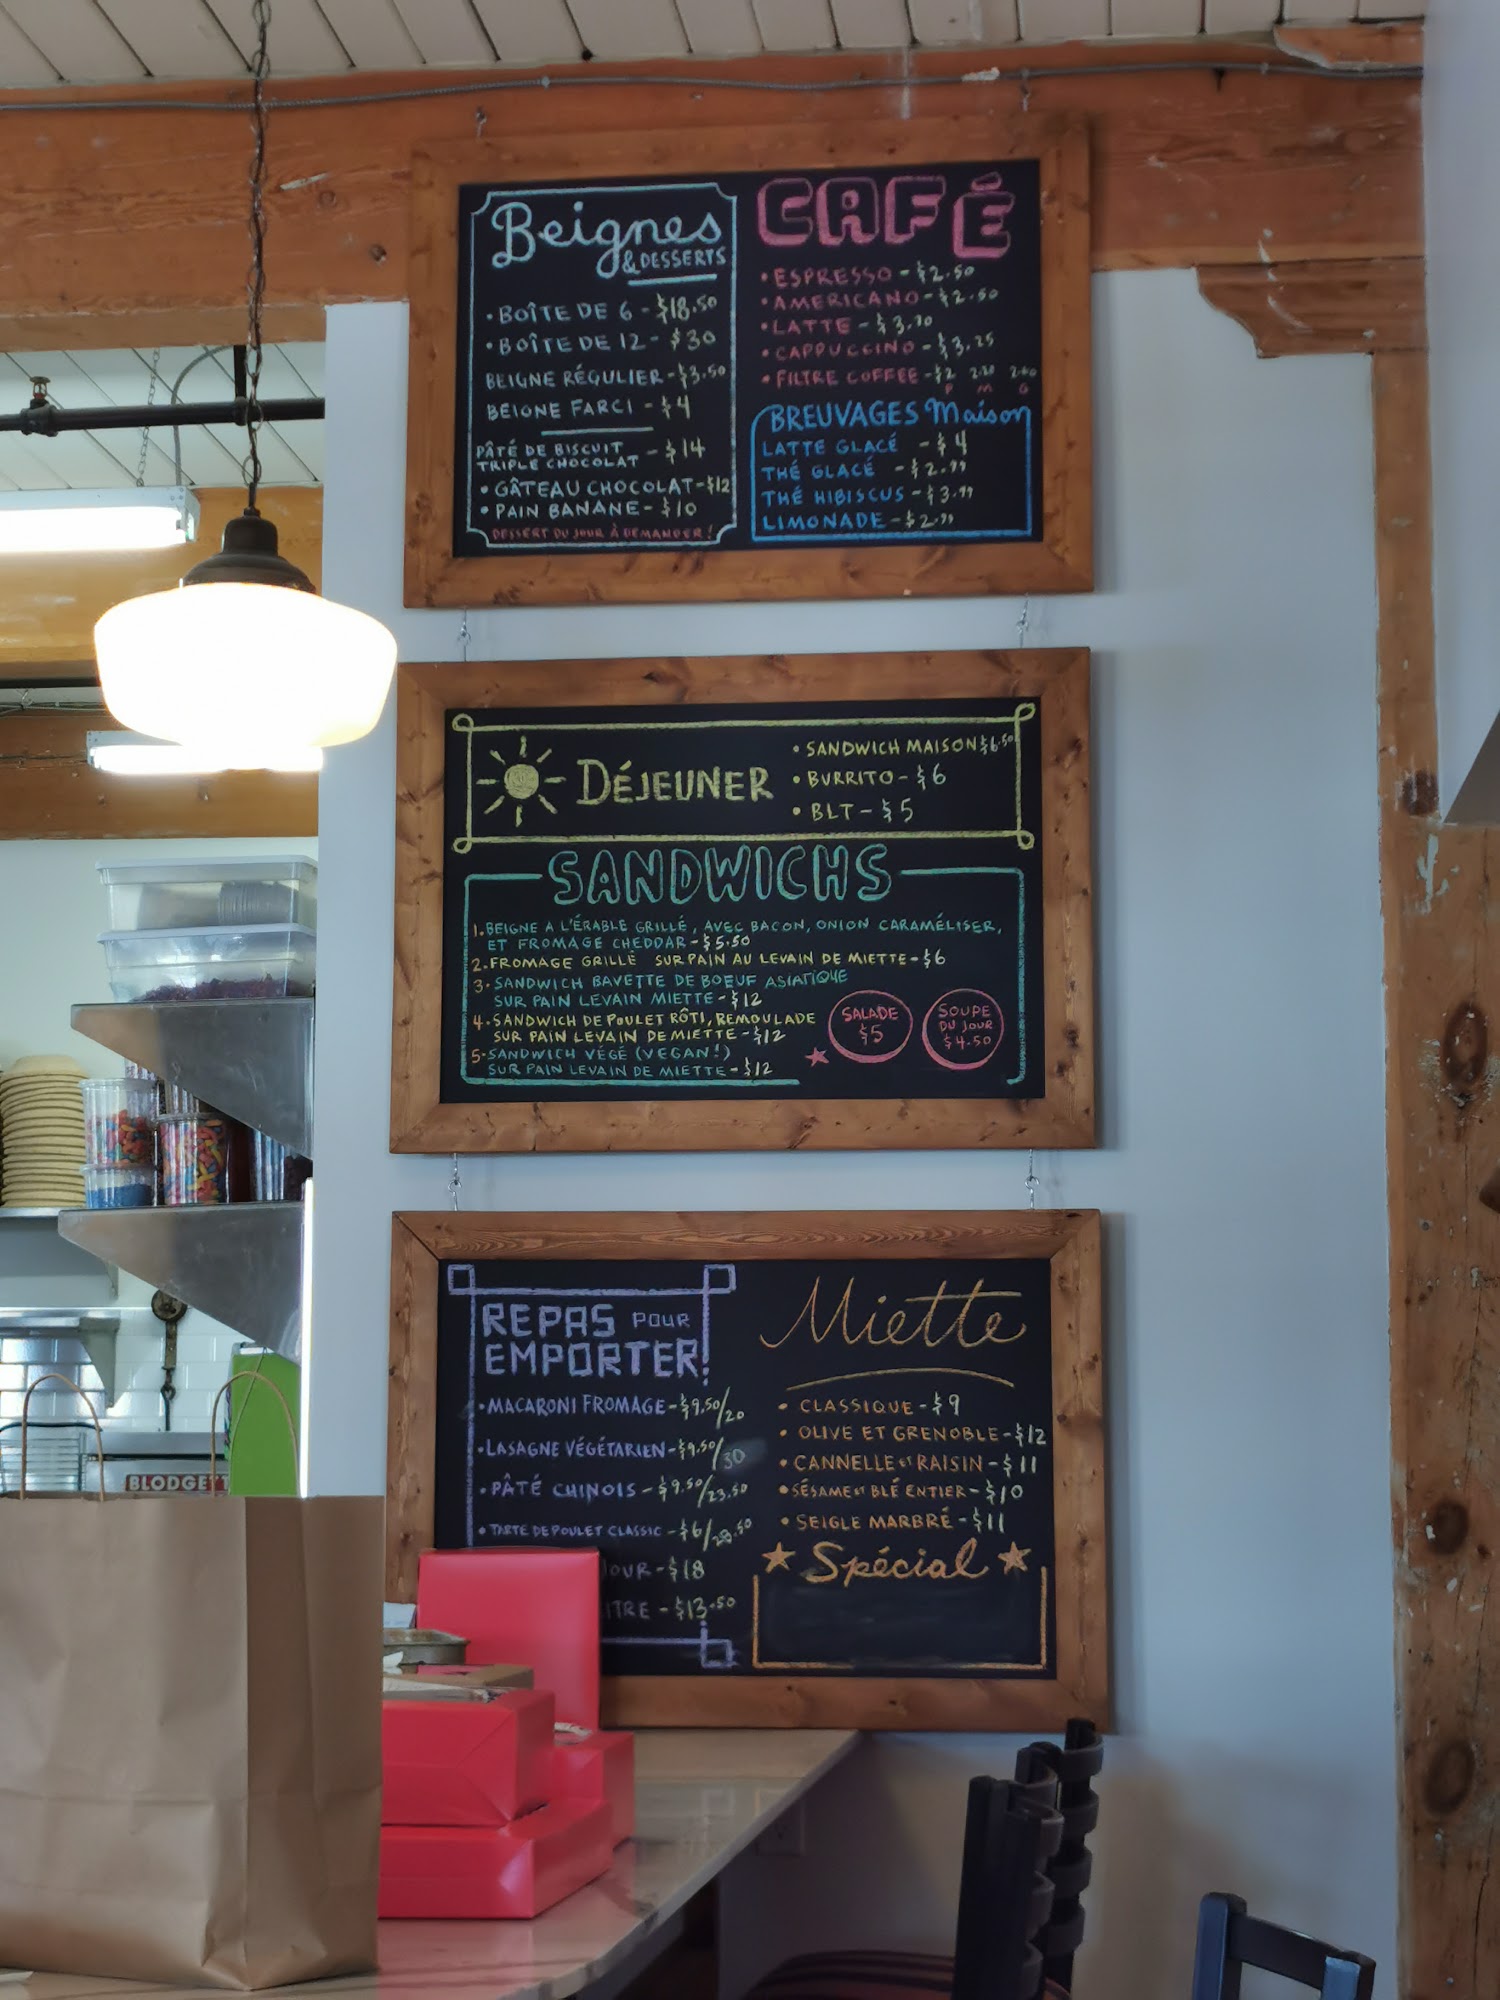 Beignes
& DESSERTS
• BOÎTE DE 6 - $18.50
• BOÎTE DE 12 - $30
BEIGNE RÉGULIER - $3.50
BEIGNE FARCI - $4
PÂTÉ DE BISCUIT
TRIPLE CHOCOLAT - $14
• GÂTEAU CHOCOLAT - $12
• PAIN BANANE - $10
DESSERT DU JOUR À DEMANDER!
CAFÉ
• ESPRESSO - $2.50
• AMERICANO - $2.50
• LATTE -
• CAPPUCCINO - $3.25
• FILTRE COFFEE - $2
P M G
BREUVAGES Maison
LATTE GLACÉ - $4
THÉ GLACÉ - $2.99
THÉ HIBISCUS - $3.99
LIMONADE - $2.99
DÉJEUNER
• SANDWICH MAISON $6.50
• BURRITO - $6
• BLT - $5
SANDWICHS
1. BEIGNE A L'ÉRABLE GRILLÉ, AVEC BACON, ONION CARAMÉLISER,
ET FROMAGE CHEDDAR - $5.50
2. FROMAGE GRILLÉ SUR PAIN AU LEVAIN DE MIETTE - $6
3. SANDWICH BAVETTE DE BOEUF ASIATIQUE
SUR PAIN LEVAIN MIETTE - $12
4. SANDWICH DE POULET RÔTI, REMOULADE
SUR PAIN LEVAIN DE MIETTE - $12
5. SANDWICH VÉGÉ (VEGAN!)
SUR PAIN LEVAIN DE MIETTE - $12
SALADE
$5
SOUPE
DU JOUR
$4.50
REPAS POUR
EMPORTER!
• MACARONI FROMAGE - $9.50/20
• LASAGNE VÉGÉTARIEN - $9.50/30
• PÂTÉ CHINOIS - $9.50/23.50
• TARTE DE POULET CLASSIC - $6/
JOUR - $18
ITRE - $13.50
Miette
• CLASSIQUE - $9
• OLIVE ET GRENOBLE - $12
• CANNELLE ET RAISIN - $11
• SÉSAME ET BLÉ ENTIER - $10
• SEIGLE MARBRÉ - $11
Spécial
BLODGETT